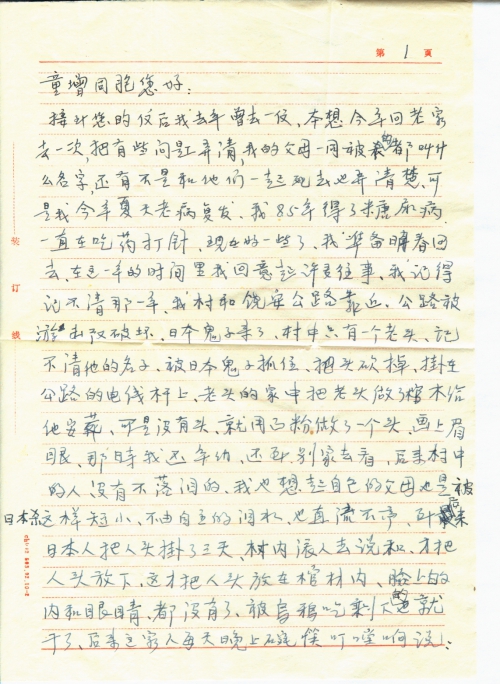 第 1 頁
童增同胞您好:
接到您的仪后我去年曾去一仪,本想今年回老家
去一次,把有些问题弄清,我的父母一同被杀的都叫什
么名字,还有不是和他们一起死去也弄清楚,可
是我今年夏天老病复发,我85年得了糖尿病
一直在吃药打针,现在好一些了,我准备明春回
去,在这一年的时间里我回意起许多往事,我记得
记不清那一年,我村和饶安公路靠近,公路被
游击队破坏,日本鬼子来了,村中只有一个老头,记
不清他的名子,被日本鬼子抓住,把头砍掉,掛在
公路的电线杆上,老头的家中把老头做了棺木给
他安葬,可是没有头,就用面粉做了一个头,画上眉
眼,那时我还年幼,还到别家去看,后来村中
的人没有不落泪的,我也想起自己的父母也是被
日本杀这样短小,不由自主的泪水也直流不停,后来
日本人把人头掛了三天,村内派人去说和,才把
人头放下,这才把人头放在棺材内,脸上的
肉和眼睛,都没有了,被乌鸦吃剩下的也就
干了,后来这家人每天晚上碗筷叮噹响说:
装
订
线